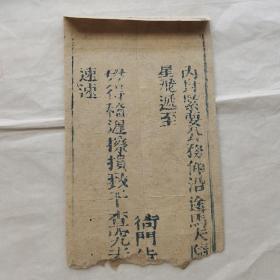 內有緊要公務仰沿途馬夫
星飛遞至
衙門
毋得稽遲擦損致干查究
速速